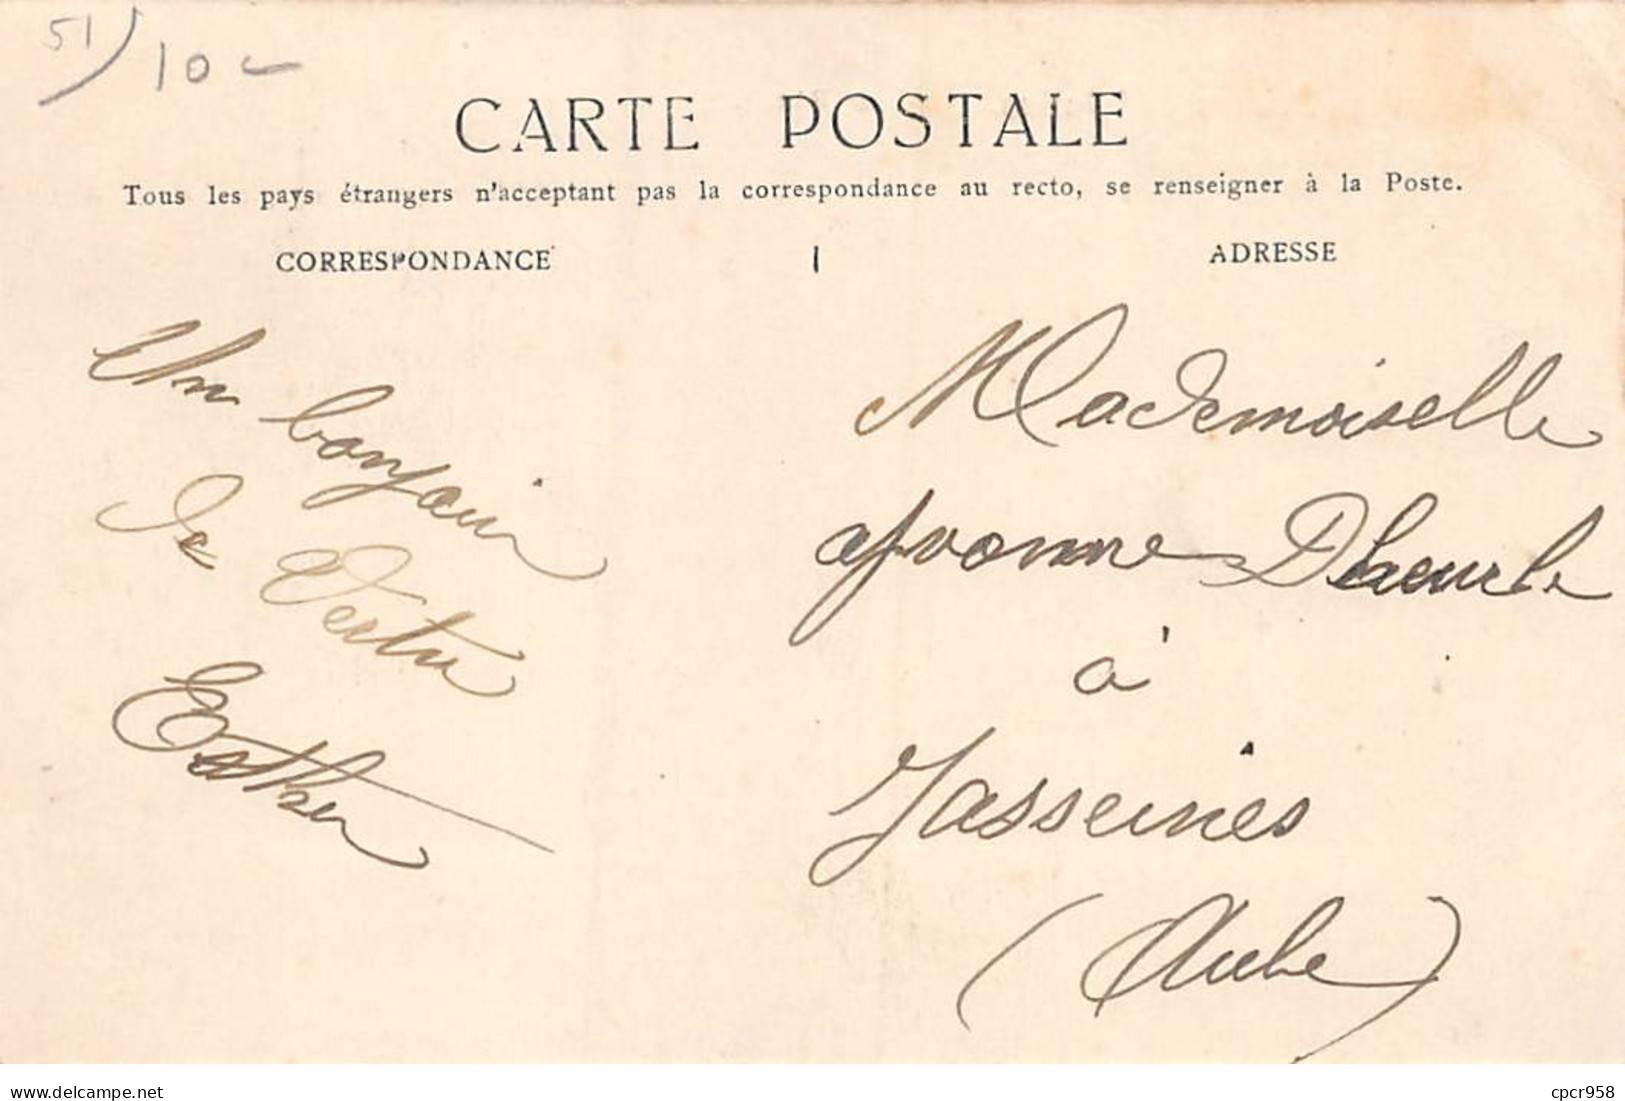 51/10 -
CARTE POSTALE
Tous les pays étrangers n'acceptant pas la correspondance au recto, se renseigner à la Poste.
CORRESPONDANCE
ADRESSE
Un bonjour
de Vertu
Esther
Mademoiselle
Yvonne
à
Jasseines
(Aube)
https://www.delcampe.net
cpcr958